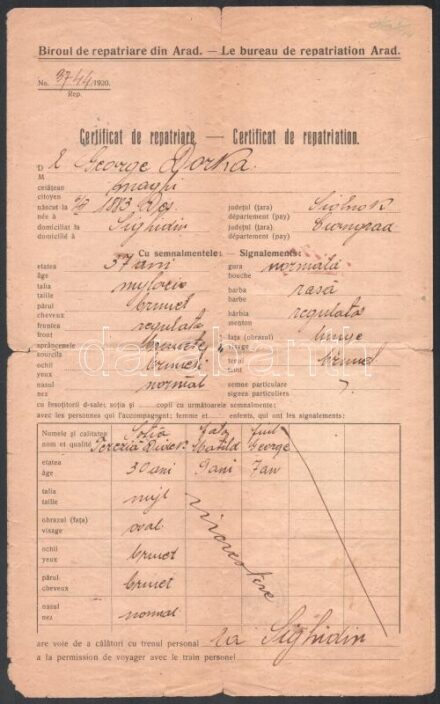 Biroul de repatriare din Arad. — Le bureau de repatriation Arad.
No. 3744/1920.
Rep.
Certificat de repatriare — Certificat de repatriation.
D
M George Dorka.
cetăţean
citoyen
născut la 1883 județul (ţara)
née à département (pay)
domiciliat la Sighidin județul (ţara)
domicilié à département (pay)
Cu semnalmentele: — Signalements:
etatea 37 ani gura normală
âge bouche
talia mijlocie barba rasă
taille barbe
părul brunet bărbia regulata
cheveux menton
fruntea regulata faţa (obrazul)
front visage
sprâncenele brunete tenul brunet
sourcils teint
ochii
yeux
nasul normal semne particulare
nez signes particuliers
cu însoţitorii d-sale: soţia şi copii cu următoarele semnalmente:
avec les personnes qui l'accompagnent; femme et enfants, qui ont les signalements:
Numele şi calitatea Soția fata
nom et qualité Matild George
etatea 30 ani 9 ani 7 an
âge
talia mijl
taille
obrazul (faţa) oval
visage
ochii brunet
yeux
părul brunet
cheveux
nasul normal
nez
darabanth
are voie de a călători cu trenul personal la Sighidin
a la permission de voyager avec le train personel